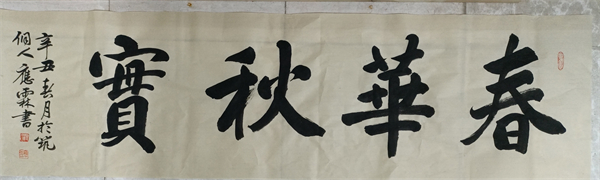 春華秋實
辛丑春月於筑
個人應霖書